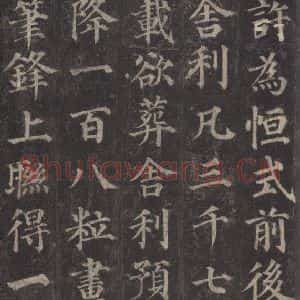 許為恒式前後
舍利凡二千七
載欲葬舍利預
降一百八粒畫
筆鋒上瞧得一
Shufawang.CN